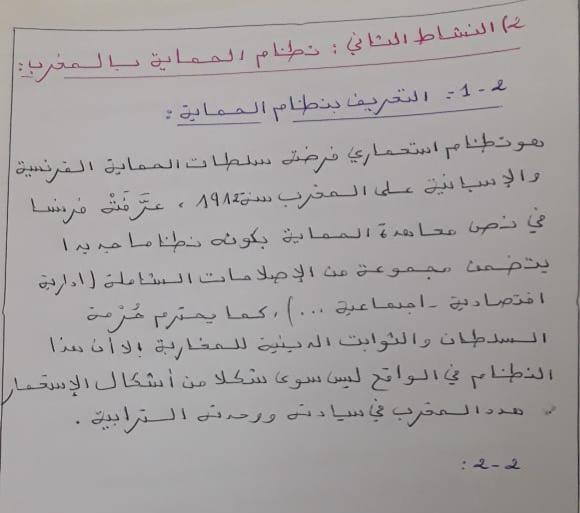 2) النشاط الثاني : نظام الحماية بالمغرب :
2-1- التعريف بنظام الحماية :
هو نظام استعماري فرضته سلطات الحماية الفرنسية
والإسبانية على المغرب سنة 1912 ، عرَّفَتْهُ فرنسا
في نص معاهدة الحماية بكونه نظاما جديدا
يتضمن مجموعة من الإصلاحات الشاملة (إدارية
اقتصادية - اجتماعية ...) ، كما يحترم حُرْمة
السلطان والثوابت الدينية للمغاربة إلا أن هذا
النظام في الواقع ليس سوى شكلا من أشكال الإستعمار
هدد المغرب في سيادته ووحدته الترابية .
2-2 :